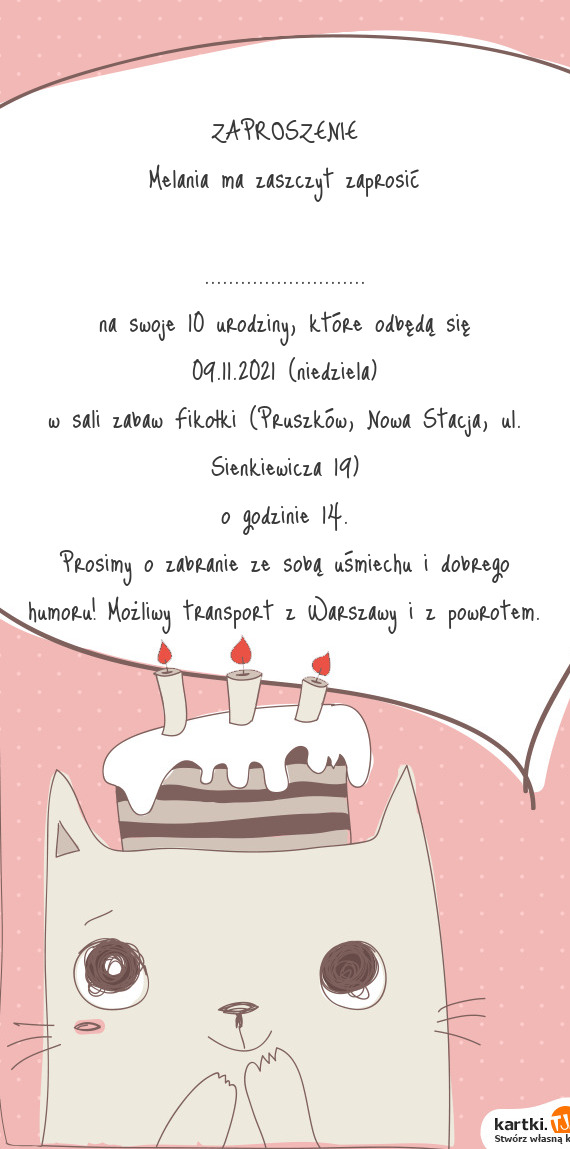 ZAPROSZENIE
Melania ma zaszczyt zaprosić
...........................
na swoje 10 urodziny, które odbędą się
09.11.2021 (niedziela)
w sali zabaw Fikołki (Pruszków, Nowa Stacja, ul.
Sienkiewicza 19)
o godzinie 14.
Prosimy o zabranie ze sobą uśmiechu i dobrego
humoru! Możliwy transport z Warszawy i z powrotem.
kartki.TJ
Stwórz własną k